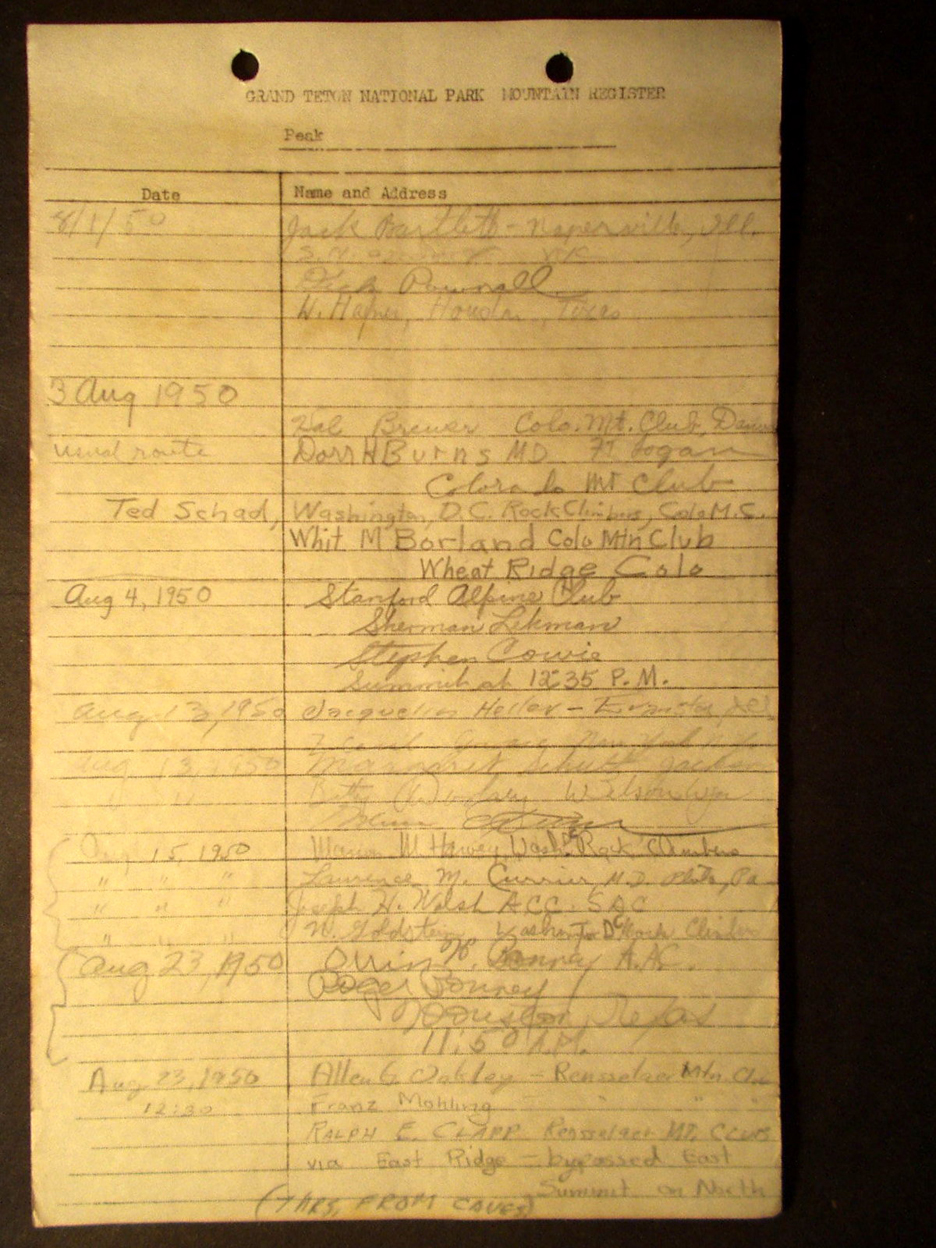 GRAND TETON NATIONAL PARK MOUNTAIN REGISTER
Peak
Date Name and Address
8/1/50 Jack Bartlett - Naperville, Ill.
Dick Pownall
W. Houston, Texas
3 Aug 1950
Hal Brewer Colo. Mt. Club,
usual route Dorr H Burns MD Ft Logan
Colorado Mt Club
Ted Schad, Washington, D.C. Rock Climbers, Colo M.C.
Whit M Borland Colo Mtn Club
Wheat Ridge Colo
Aug 4, 1950 Stanford Alpine Club
Sherman Lehman
Stephen Cowie
Summit at 12:35 P.M.
Aug. 13, 1950 -
Aug 13, 1950 Margaret Jackson
" Betty Wilson Wyo
Aug 15, 1950 W Harvey Wash. Rock Climbers
" " " Laurence M. Currier M.D. Phila, Pa
" " " Joseph H. Walsh ACC. SAC
" " " N. Goldstein Washington DC Rock Climbers
Aug 23, 1950 Orrin H. Bonney A.A.C.
Roger Bonney
Houston, Texas
11:50 A.M.
Aug. 23, 1950 Allen G. Oakley - Rensselaer Mtn. Club
12:30 Franz Mohling " " "
RALPH E. CLAPP Rensselaer MT. CLUB
via East Ridge - bypassed East
Summit on North
(7 HRS. FROM CAVES)